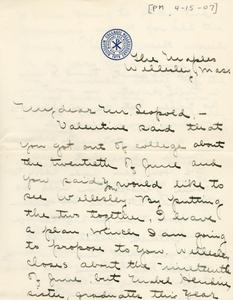 [PM 4-15-07]
The Maples
Wellesley, Mass.
My dear Mr. Leopold, -
Valentine said that
you got out of college about
the twentieth of June and
you said you would like to
see Wellesley. By putting
the two together, I have
a plan, which I am going
to propose to you. Wellesley
closes about the nineteenth
of June, but Mabel
sister, graduates this year